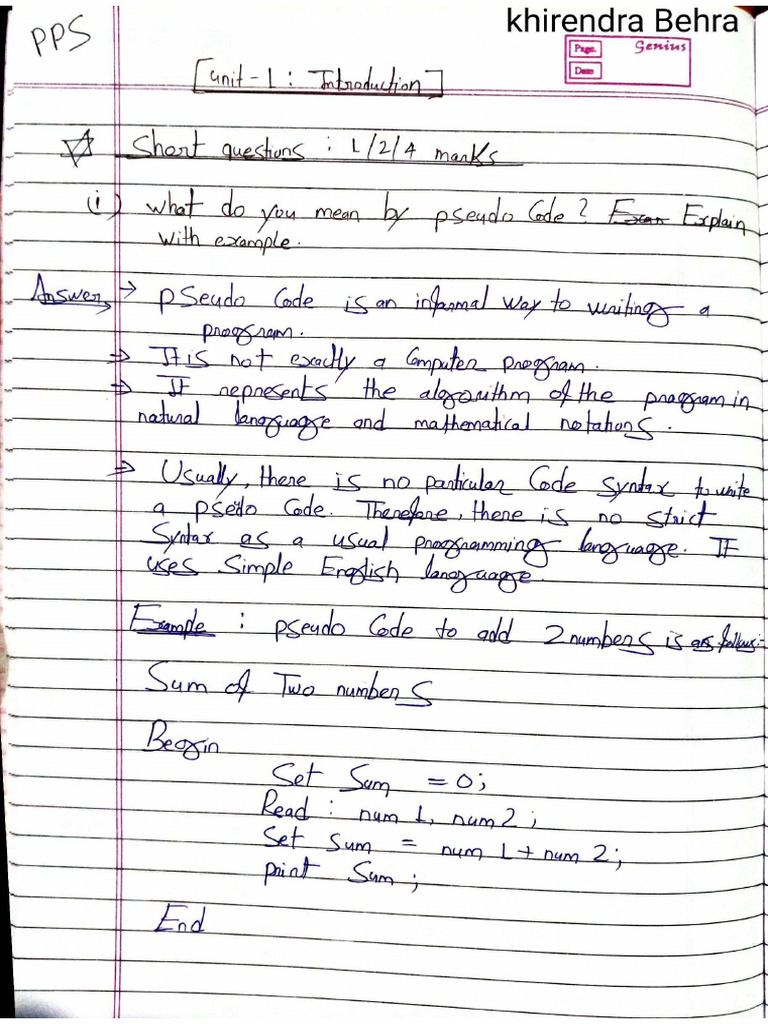 khirendra Behra
PPS
Page.
Genius
Date
[unit-1: Introduction]
Short questions : 1/2/4 marks
(i) what do you mean by pseudo Code? Exam Explain
with example.
Answer → pseudo Code is an informal way to writing a
program.
⇒ It is not exactly a Computer program.
⇒ It represents the algorithm of the program in
natural language and mathematical notations.
⇒ Usually, there is no particular Code syntax to write
a psedo Code. Therefore, there is no strict
Syntax as a usual programming language. It
uses Simple English language.
Example : pseudo Code to add 2 numbers is as follows:-
Sum of Two numbers
Begin
Set Sum = 0;
Read : num 1, num 2;
Set sum = num 1 + num 2;
print Sum ;
End